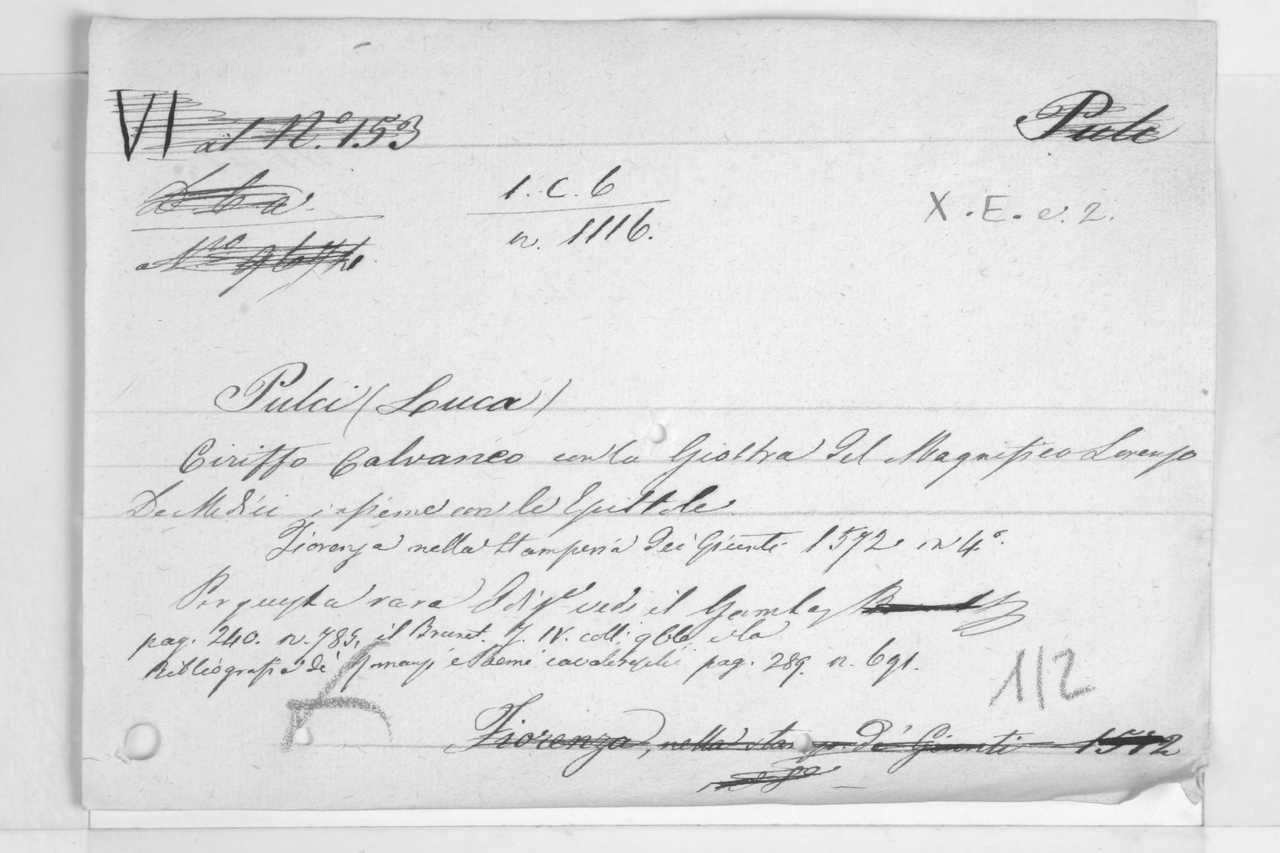 VI al N.º 153
Pulci
1. C. 6
n. 1116.
X. E. e. 2.
Pulci (Luca)
Ciriffo Calvaneo con la Giostra del Magnifico Lorenzo
De Medici insieme con le Epistole.
Fiorenza nella Stamperia dei Giunti 1572 in 4º.
Per questa rara Ediz.e vedi il Gamba
pag. 240. n. 785, il Brunet. T. IV. col. 966 e la
Bibliografia de' Romanzi e Poemi cavalereschi pag. 289. n. 691.
1/2
Fiorenza, nella stamp. de' Giunti 1572